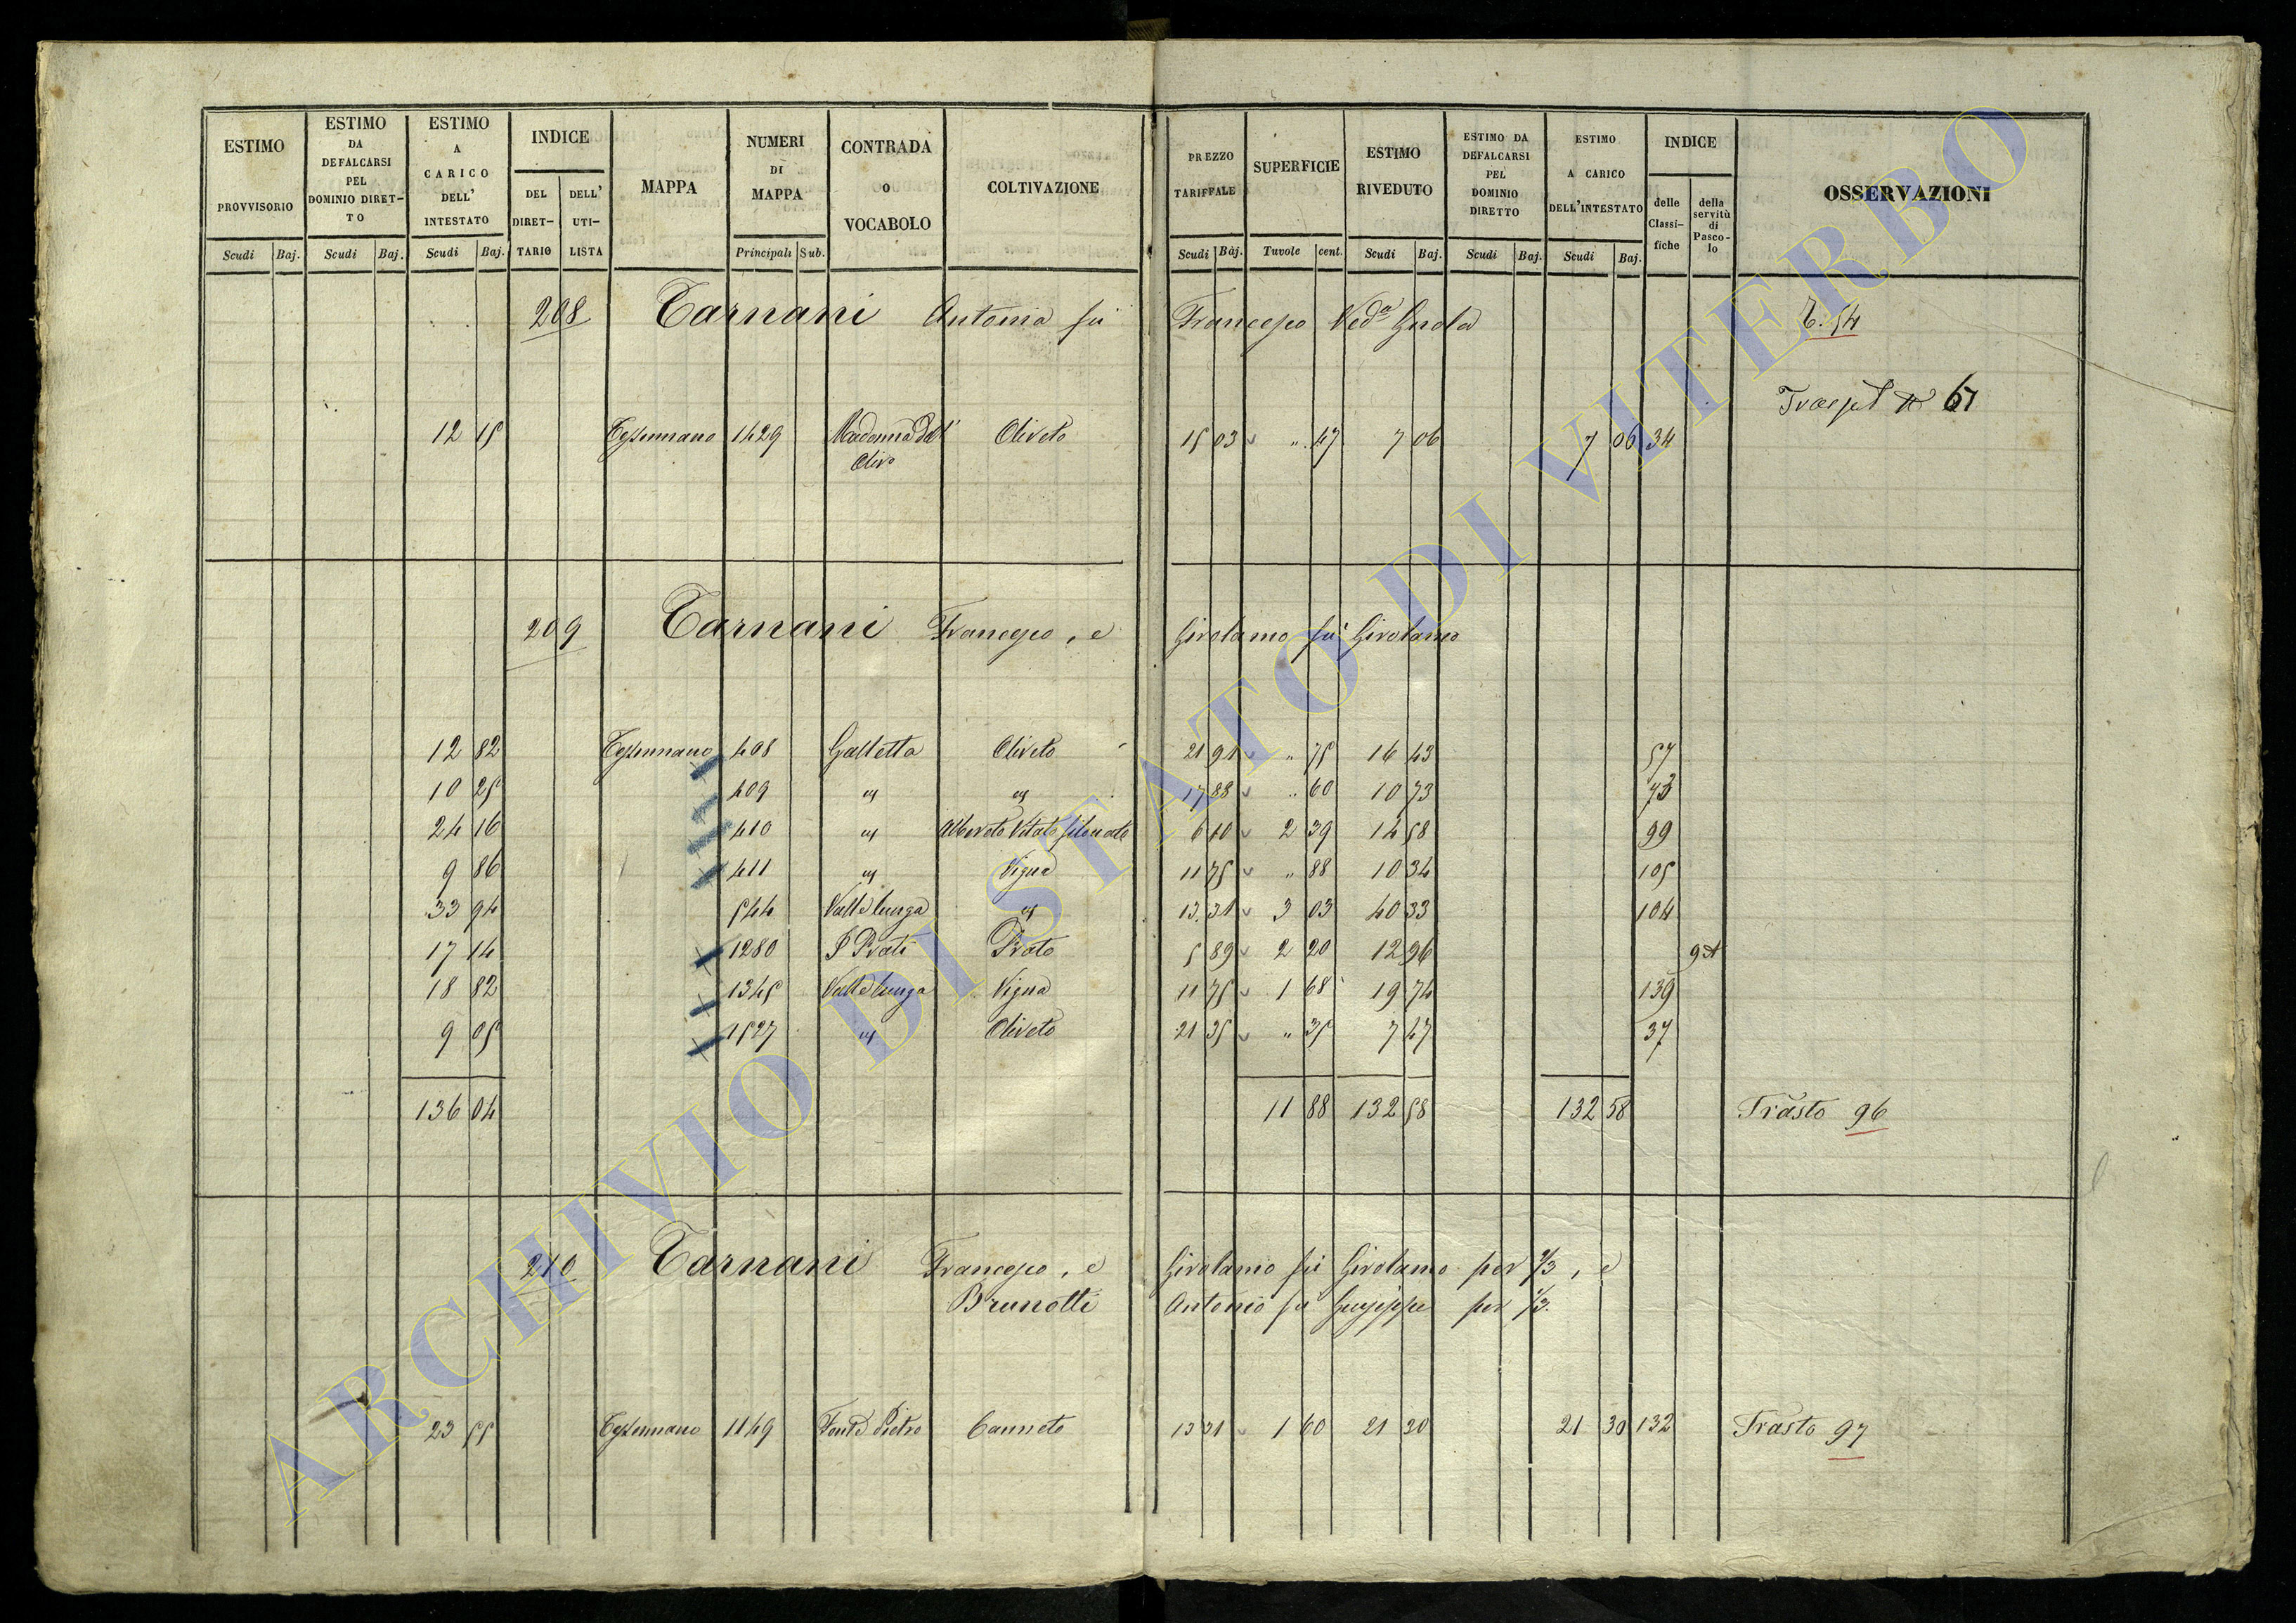 ESTIMO PROVVISORIO Scudi Baj.
ESTIMO DA DEFALCARSI PEL DOMINIO DIRETTO Scudi Baj.
ESTIMO A CARICO DELL' INTESTATO Scudi Baj.
INDICE DEL DIRET-TARIO DELL' UTI-LISTA
MAPPA
NUMERI DI MAPPA Principali Sub.
CONTRADA o VOCABOLO
COLTIVAZIONE
PREZZO TARIFFALE Scudi Baj.
SUPERFICIE Tavole cent.
ESTIMO RIVEDUTO Scudi Baj.
ESTIMO DA DEFALCARSI PEL DOMINIO DIRETTO Scudi Baj.
ESTIMO A CARICO DELL'INTESTATO Scudi Baj.
INDICE delle Classi-fiche della servitù di Pasco-lo
OSSERVAZIONI
208 Tarnani Antonia fu Francesco Ved.a T. 54
67
12 15 Tessennano 1429 Madonna dell' Olivo Oliveto 15 03 " 47 7 06 7 06 34
209 Tarnani Francesco, e Girolamo fu Girolamo
12 82 Tessennano 408 Oliveto 21 91 " 75 16 43 57
10 25 409 " " 17 88 " 60 10 73 73
24 16 410 " Alberato Vitato 6 10 2 39 14 58 99
9 86 411 " Vigna 11 75 " 88 10 34 105
33 94 544 Valle lunga " 13 31 3 03 40 33 104
17 14 1280 I Prati Prato 5 89 2 20 12 96
18 82 1345 Valle lunga Vigna 11 75 1 68 19 74 139
9 05 1527 " Oliveto 21 35 " 35 7 47 37
136 04 11 88 132 58 132 58 Trasto 96
210 Tarnani Francesco, e Girolamo fu Girolamo per 2/3, e
Brunotti Antonio fu Giuseppe per 1/3.
23 55 Tessennano 1149 Canneto 13 31 1 60 21 30 21 30 132 Trasto 97
ARCHIVIO DI STATO DI VITERBO